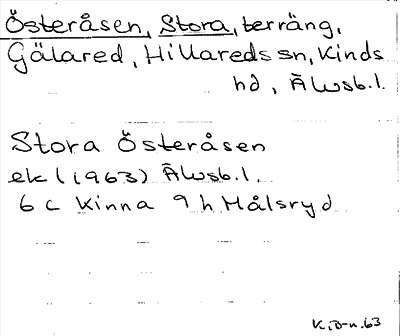 Österåsen, Stora, terräng,
Gälared, Hillareds sn, Kinds
hd, Älvsb.l.
Stora Österåsen
ek (1963) Älvsb.l.
6 C Kinna 9 h Målsryd
K.B-n.63